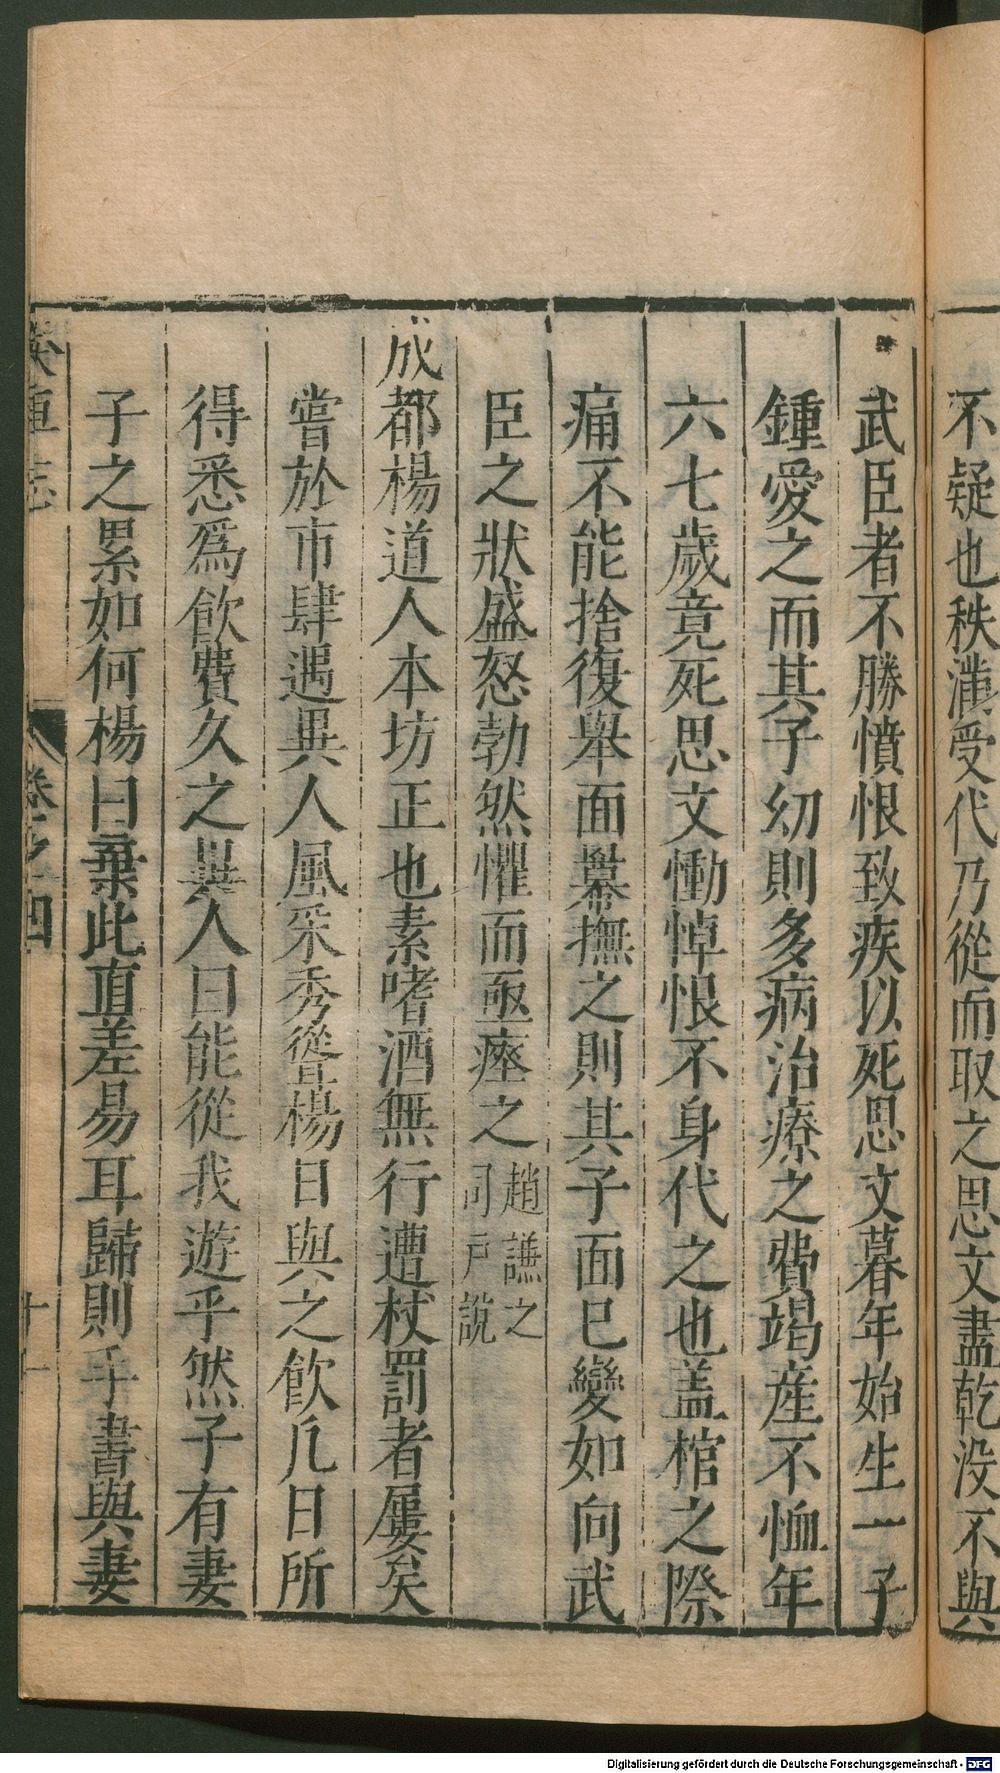 不疑也秩滿受代乃從而取之思文盡乾没不與
武臣者不勝憤恨致疾以死思文暮年始生一子
鍾愛之而其子幼則多病治療之費竭産不恤年
六七歲竟死思文慟悼恨不身代之也盖棺之際
痛不能捨復舉面幕撫之則其子面已變如向武
臣之狀盛怒勃然懼而亟瘞之趙謙之
司戸說
成都楊道人本坊正也素嗜酒無行遭杖罰者屢矣
嘗於市肆遇異人風采秀聳楊日與之飲凡日所
得悉爲飲費久之異人曰能從我遊乎然子有妻
子之累如何楊曰棄此直差易耳歸則手書與妻
睽車志
卷之四
十一
Digitalisierung gefördert durch die Deutsche Forschungsgemeinschaft - DFG